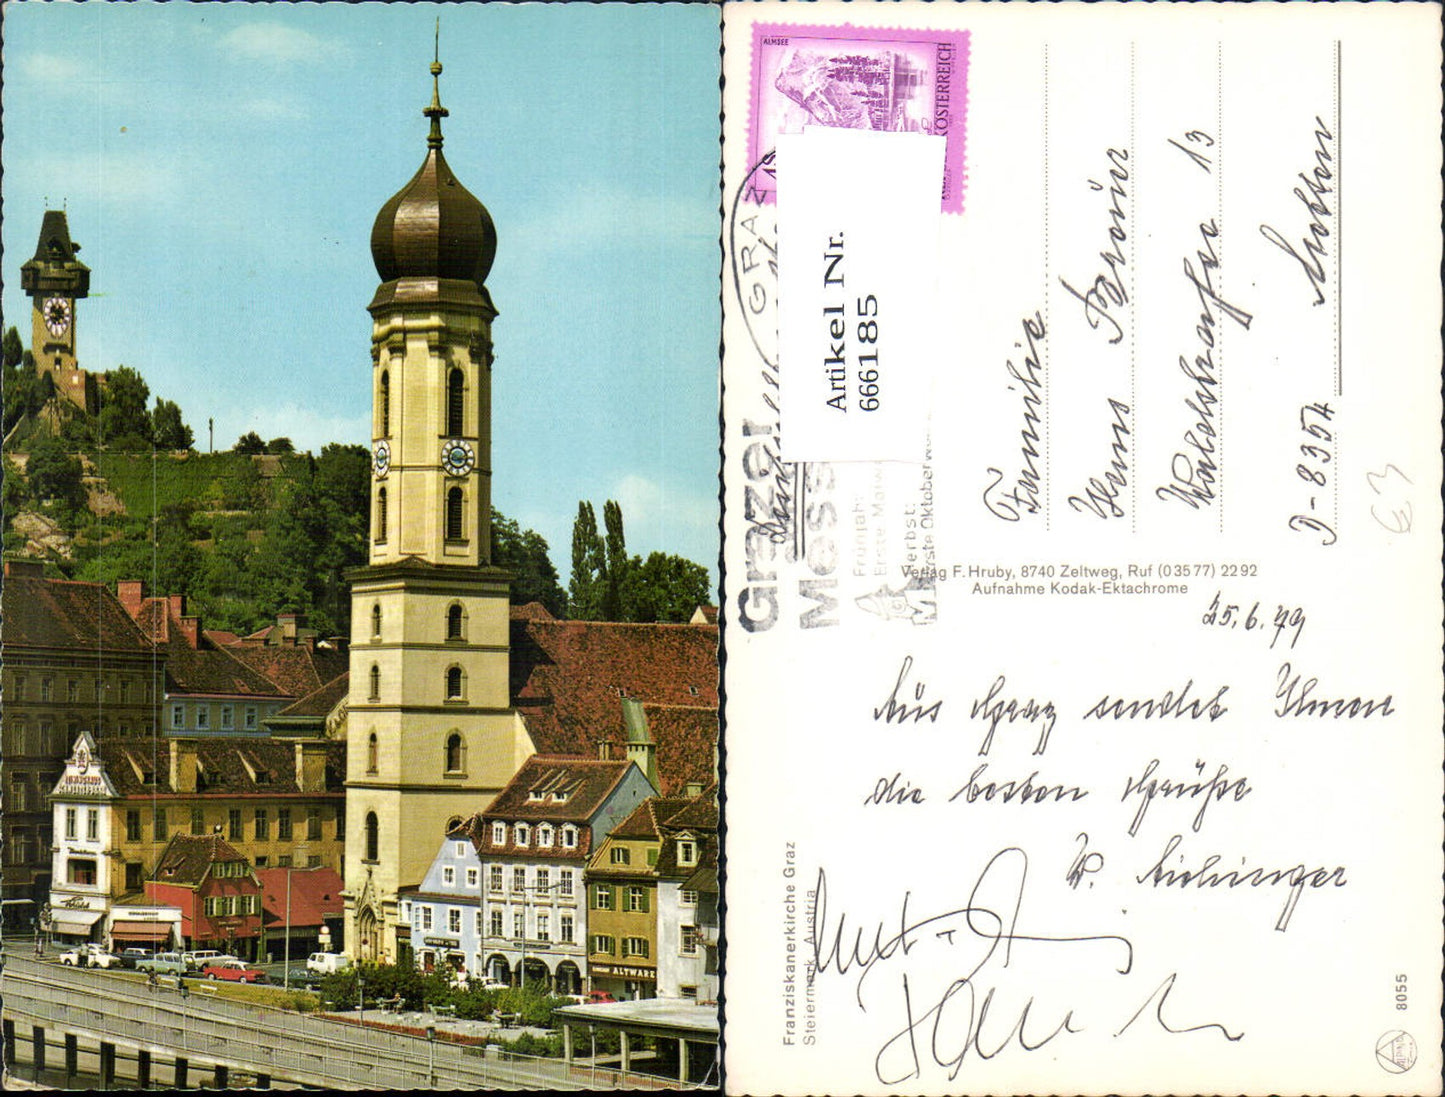 ALTWARE
ALMSEE
ÖSTERREICH
GRAZ
Artikel Nr.
666185
Grazer
Messe
Frühjahr:
Herbst:
Familie
Hans Bräu
Waldstraße 13
D-8354 Metten
€3
Verlag F. Hruby, 8740 Zeltweg, Ruf (0 35 77) 22 92
Aufnahme Kodak-Ektachrome
25.6.79
Aus Graz sendet Ihnen
die besten Grüße
W. Aichinger
Franziskanerkirche Graz
Steiermark, Austria
8055